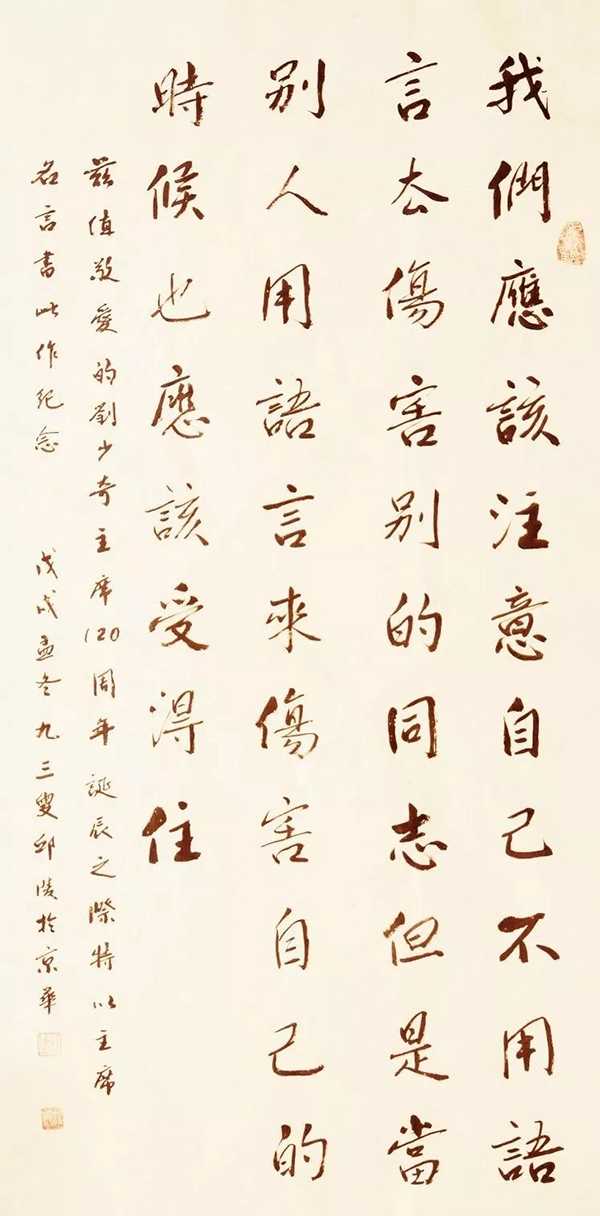 我們應該注意自己不用語
言去傷害别的同志但是當
别人用語言來傷害自己的
時候也應該受得住
茲值敬愛的劉少奇主席120周年誕辰之際特以主席
名言書此作紀念 戊戌孟冬九三叟邱陵於京華